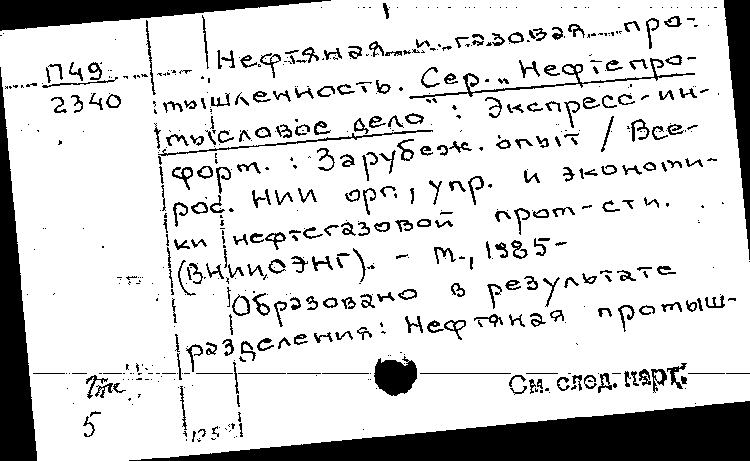 П49
2340
Нефтяная и газовая про-
мышленность. Сер. „Нефтепро-
мысловое дело“: Экспресс-ин-
форм. : Зарубеж. опыт / Все-
рос. НИИ орг., упр. и экономи-
ки нефтегазовой пром-сти.
(ВНИИОЭНГ). - М., 1985-
Образовано в результате
разделения: Нефтяная промыш-
См. след. карт.
5